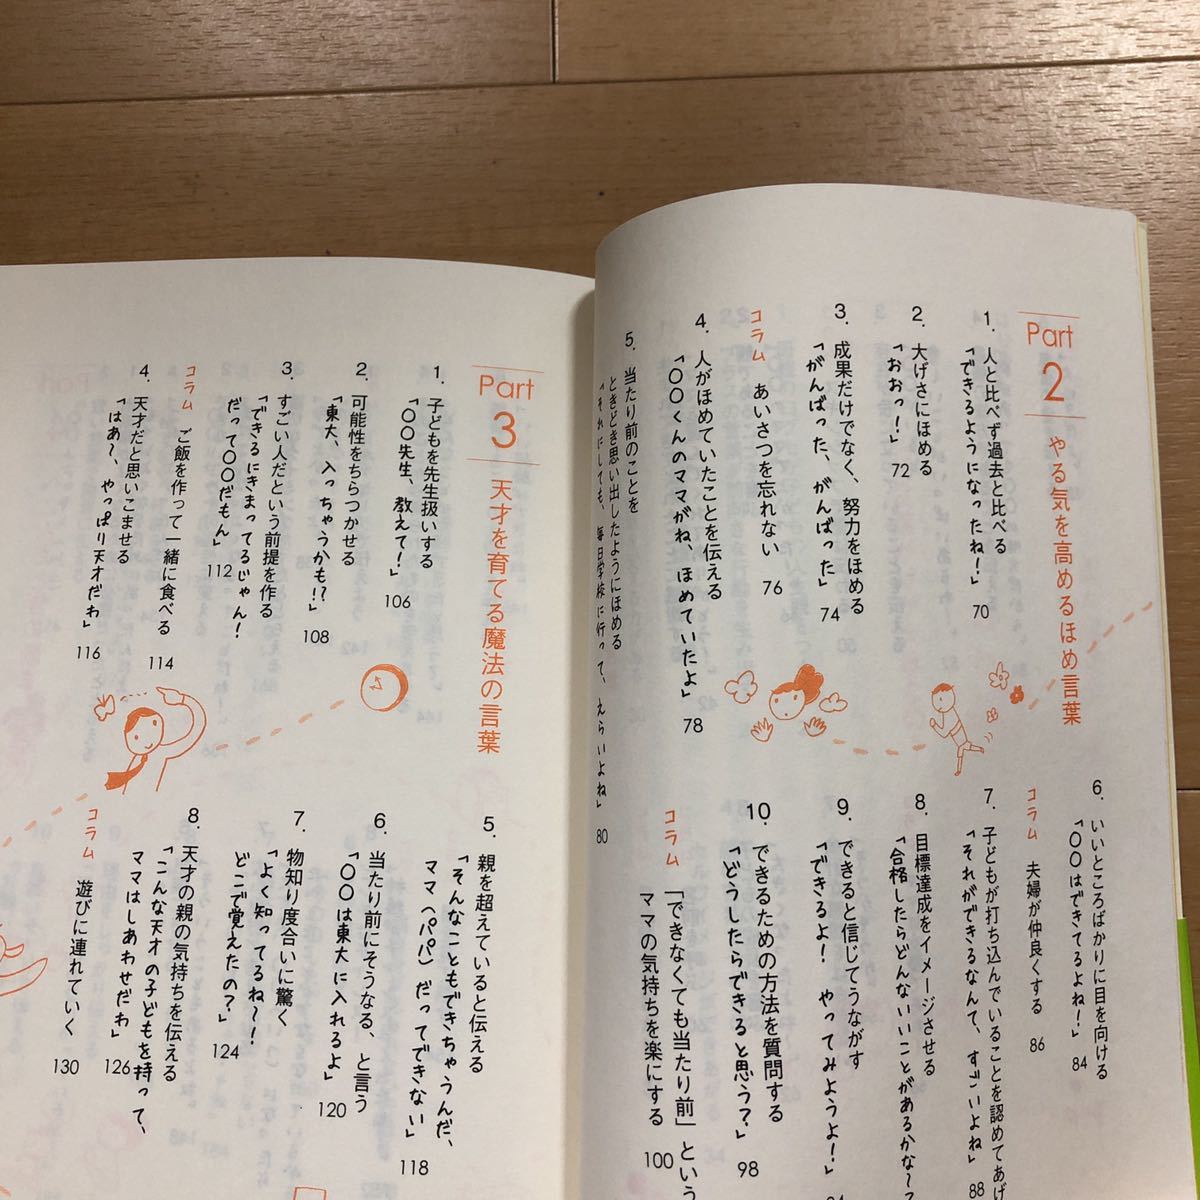 Part
2
やる気を高めるほめ言葉
1. 人と比べず過去と比べる
「できるようになったね!」 70
2. 大げさにほめる
「おおっ!」 72
3. 成果だけでなく、努力をほめる
「がんばった、がんばった」 74
コラム あいさつを忘れない 76
4. 人がほめていたことを伝える
「〇〇くんのママがね、ほめていたよ」 78
5. 当たり前のことを
ときどき思い出したようにほめる
「それにしても、毎日学校に行って、えらいよね」 80
6. いいところばかりに目を向ける
「〇〇はできてるよね!」 84
コラム 夫婦が仲良くする 86
7. 子どもが打ち込んでいることを認めてあげ
「それができるなんて、すごいよね」 88
8. 目標達成をイメージさせる
「合格したらどんないいことがあるかな〜
9. できると信じてうながす
「できるよ! やってみようよ!」 94
10. できるための方法を質問する
「どうしたらできると思う?」 98
コラム 「できなくても当たり前」という
ママの気持ちを楽にする 100
Part
3
天才を育てる魔法の言葉
1. 子どもを先生扱いする
「〇〇先生、教えて!」 106
2. 可能性をちらつかせる
「東大、入っちゃうかも!?」 108
3. すごい人だという前提を作る
「できるにきまってるじゃん!
だって〇〇だもん」 112
コラム ご飯を作って一緒に食べる 114
4. 天才だと思いこませる
「はあ〜、やっぱり天才だわ」 116
5. 親を超えていると伝える
「そんなこともできちゃうんだ、
ママ(パパ)だってできない」 118
6. 当たり前にそうなる、と言う
「〇〇は東大に入れるよ」 120
7. 物知り度合いに驚く
「よく知ってるね〜!
どこで覚えたの?」 124
8. 天才の親の気持ちを伝える
「こんな天才の子どもを持って、
ママはしあわせだわ」 126
コラム 遊びに連れていく 130